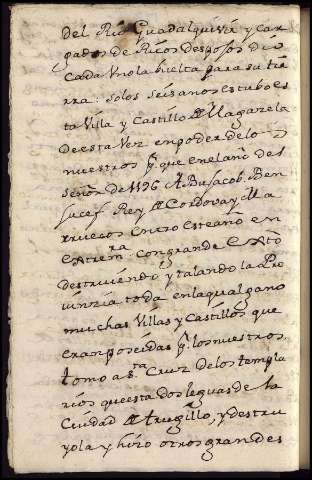 del Rio Guadalquivir y car
gados de Ricos despojos dio
Cada Uno la buelta para su tie
rra: solos seis anos estubo es
ta Villa y Castillo de Magazela
de esta Vez en poder de los
nuestros pr. que en el año del
señor de 1196 A. Busacob Ben
Jucef Rey de Cordova y Ma
rruecos entro este año en
Extrem.ra con grande Exto
destruiendo y talando la Pro
vinzia toda en la qual gano
muchas Villas y Castillos que
eran poseidas pr. los nuestros
tomo a Sta Cruz de los templa
rios que esta dos leguas de la
Ciudad de trugillo, y destru
yola y hizo otros grandes